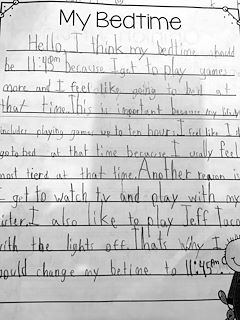 My Bedtime
Hello, I think my bedtime should
be 11:45pm because I get to play games
more and I feel like going to bed at
that time. This is important because my
includes playing games up to ten hours. I feel like I
go to bed at that time because I
most tierd at that time. Another reason is
I get to watch tv and play with my
I also like to play Jeff
with the lights off. Thats why I
change my betime to 11:45pm.